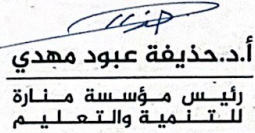 أ.د.حذيفة عبود مهدي
رئيس مؤسسة منارة
للتنمية والتعليم